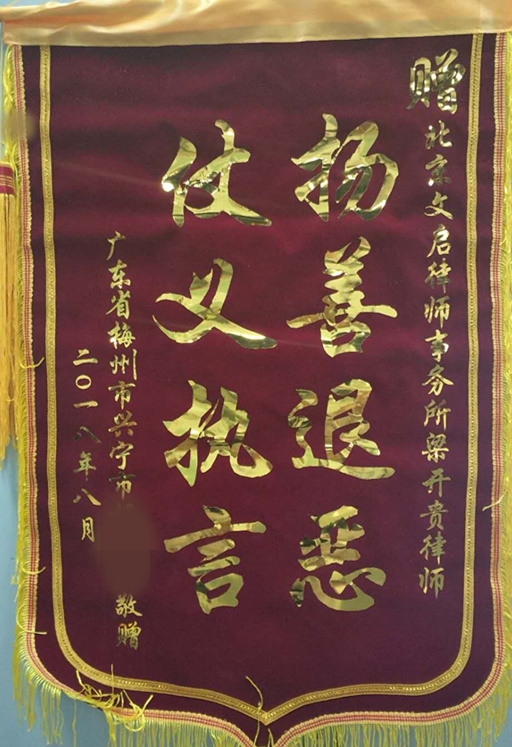 赠北京文启律师事务所梁开贵律师
扬善退恶
仗义执言
广东省梅州市兴宁市
敬赠
二〇一八年八月